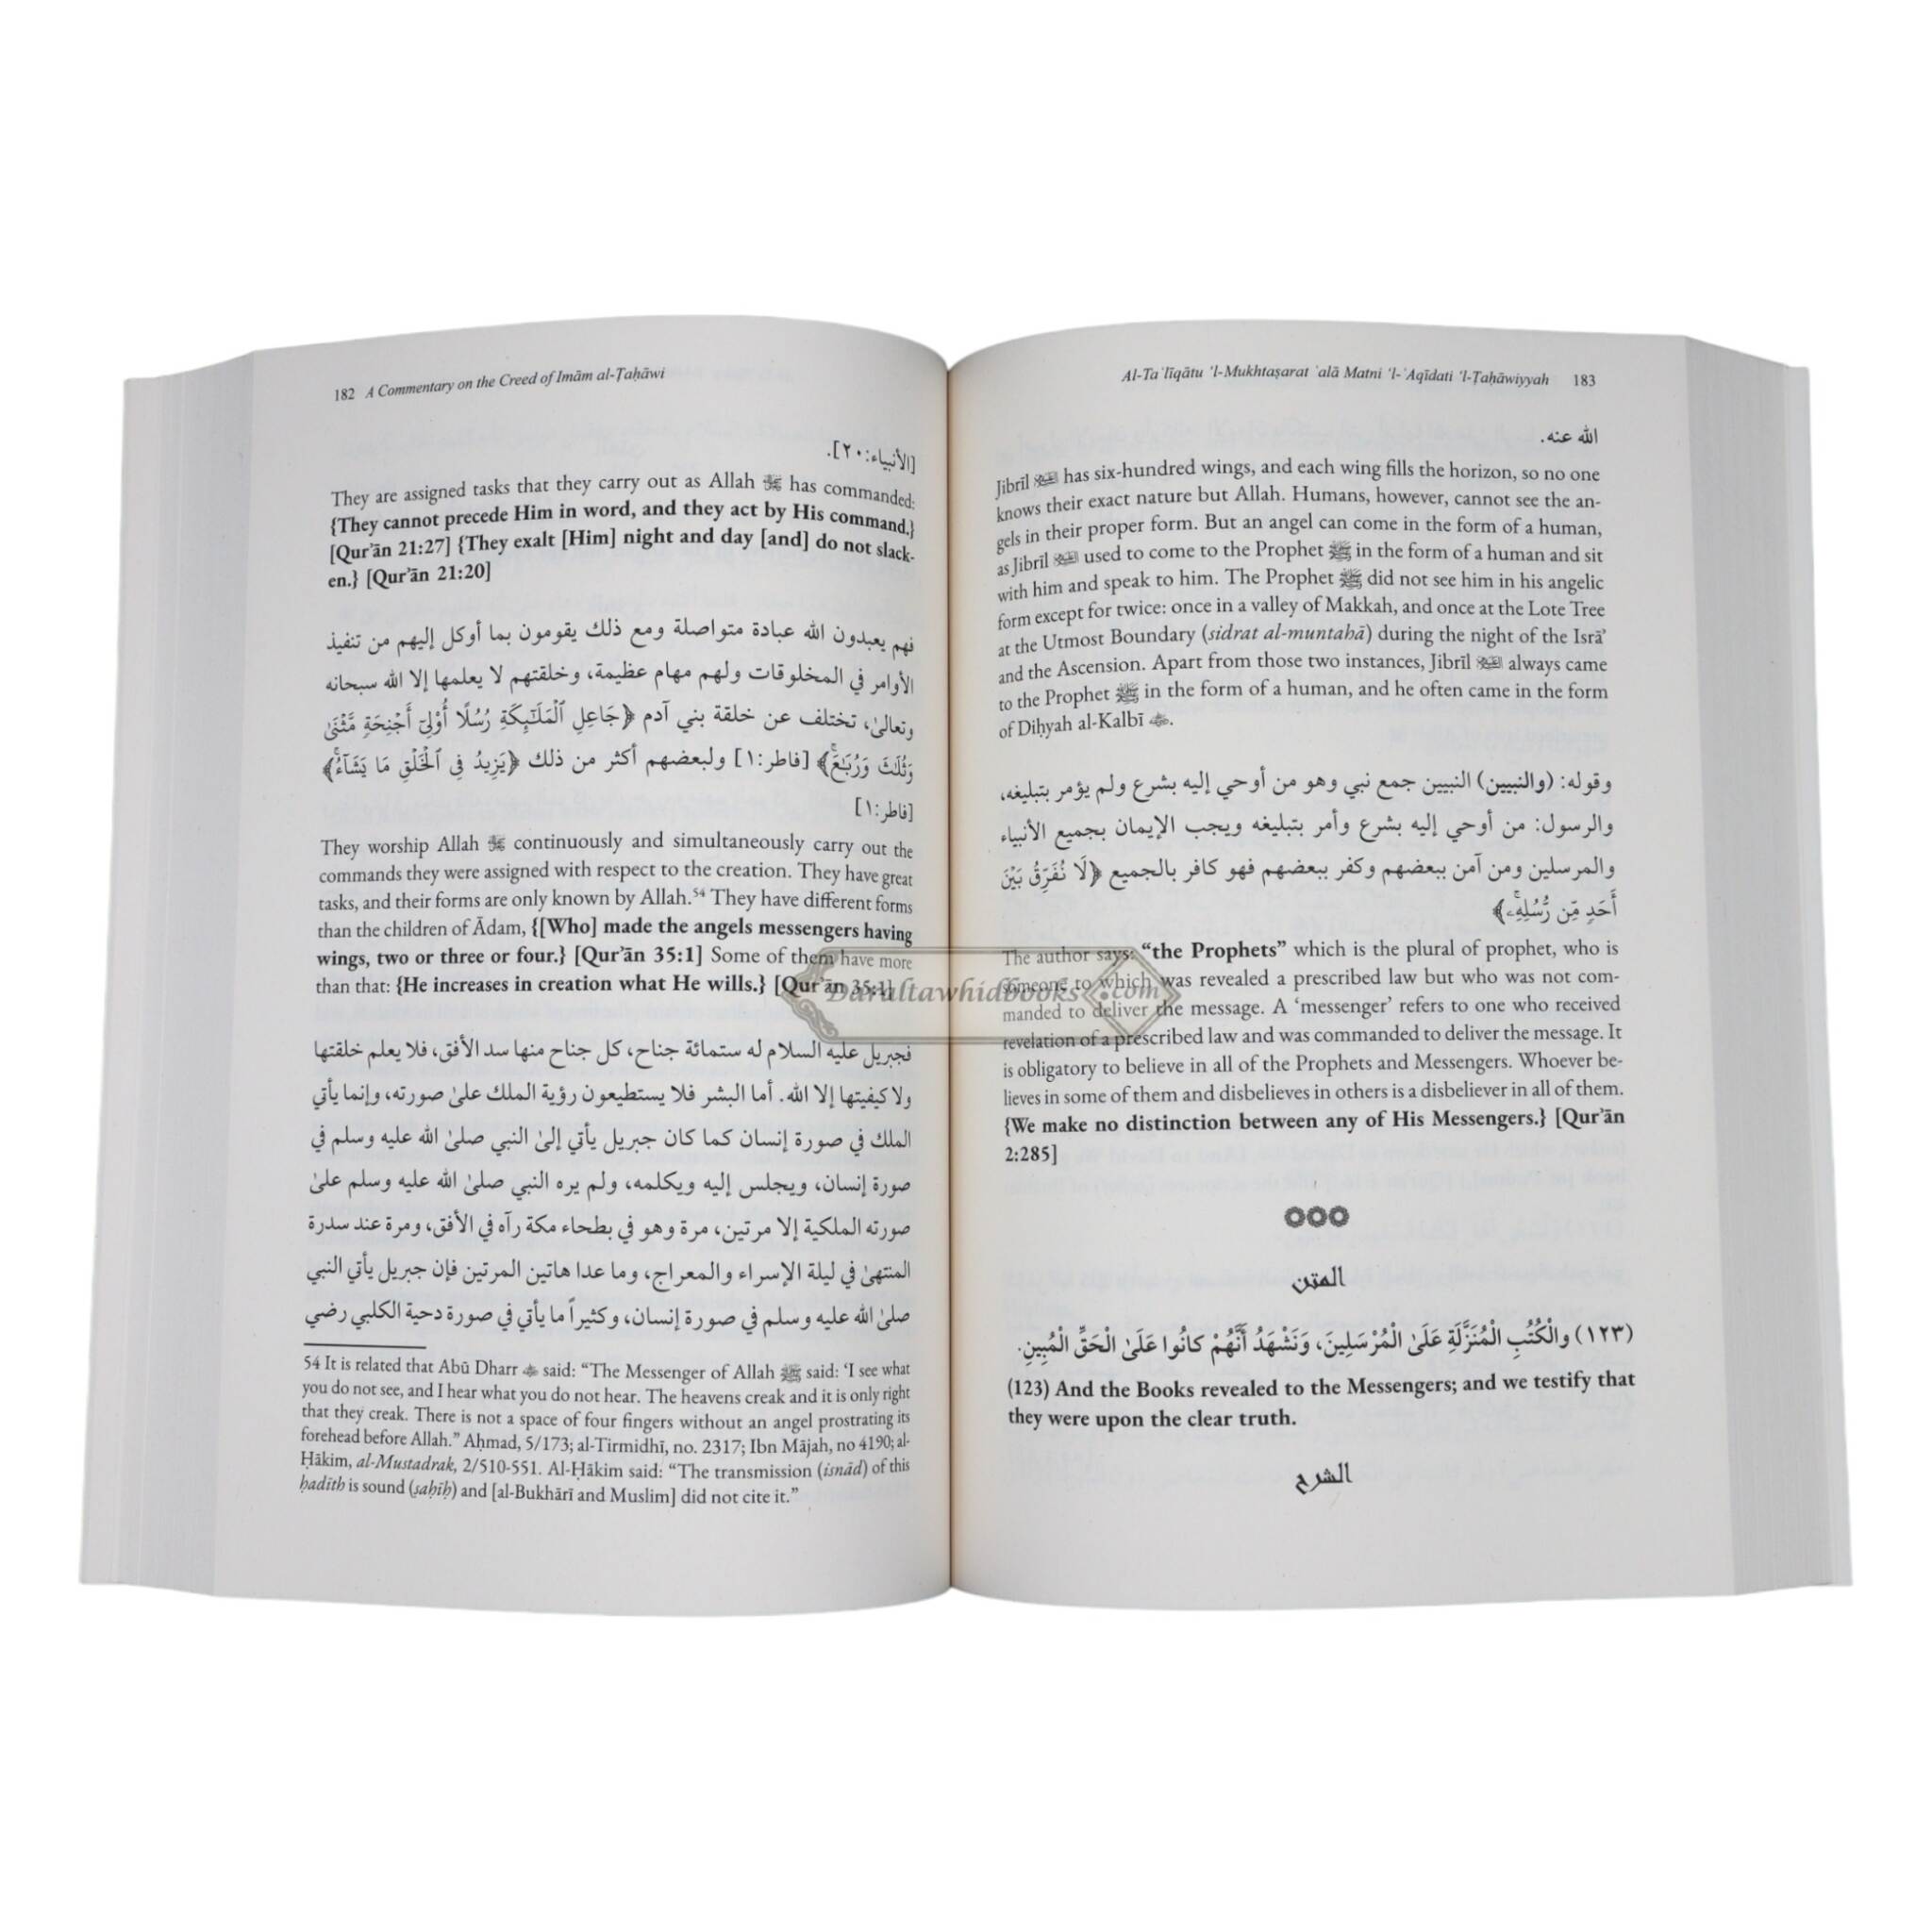 182 A Commentary on the Creed of Imām al-Ṭaḥāwi
[الأنبياء:٢٠].
They are assigned tasks that they carry out as Allah ﷻ has commanded:
{They cannot precede Him in word, and they act by His command.}
[Qur’ān 21:27] {They exalt [Him] night and day [and] do not slack-
en.} [Qur’ān 21:20]
فهم يعبدون الله عبادة متواصلة ومع ذلك يقومون بما أوكل إليهم من تنفيذ
الأوامر في المخلوقات ولهم مهام عظيمة، وخلقتهم لا يعلمها إلا الله سبحانه
وتعالىٰ، تختلف عن خلقة بني آدم ﴿جَاعِلِ ٱلْمَلَـٰٓئِكَةِ رُسُلًا أُو۟لِىٓ أَجْنِحَةٍ مَّثْنَىٰ
وَثُلَـٰثَ وَرُبَـٰعَ﴾ [فاطر:١] ولبعضهم أكثر من ذلك ﴿يَزِيدُ فِى ٱلْخَلْقِ مَا يَشَآءُ﴾
[فاطر:١]
They worship Allah ﷻ continuously and simultaneously carry out the
commands they were assigned with respect to the creation. They have great
tasks, and their forms are only known by Allah.⁵⁴ They have different forms
than the children of Ādam, {[Who] made the angels messengers having
wings, two or three or four.} [Qur’ān 35:1] Some of them have more
than that: {He increases in creation what He wills.} [Qur’ān 35:1]
فجبريل عليه السلام له ستمائة جناح، كل جناح منها سد الأفق، فلا يعلم خلقتها
ولا كيفيتها إلا الله. أما البشر فلا يستطيعون رؤية الملك علىٰ صورته، وإنما يأتي
الملك في صورة إنسان كما كان جبريل يأتي إلىٰ النبي صلىٰ الله عليه وسلم في
صورة إنسان، ويجلس إليه ويكلمه، ولم يره النبي صلىٰ الله عليه وسلم علىٰ
صورته الملكية إلا مرتين، مرة وهو في بطحاء مكة رآه في الأفق، ومرة عند سدرة
المنتهىٰ في ليلة الإسراء والمعراج، وما عدا هاتين المرتين فإن جبريل يأتي النبي
صلىٰ الله عليه وسلم في صورة إنسان، وكثيراً ما يأتي في صورة دحية الكلبي رضي
54 It is related that Abū Dharr said: “The Messenger of Allah ﷺ said: ‘I see what
you do not see, and I hear what you do not hear. The heavens creak and it is only right
that they creak. There is not a space of four fingers without an angel prostrating its
forehead before Allah.” Aḥmad, 5/173; al-Tirmidhī, no. 2317; Ibn Mājah, no 4190; al-
Ḥākim, al-Mustadrak, 2/510-551. Al-Ḥākim said: “The transmission (isnād) of this
ḥadīth is sound (ṣaḥīḥ) and [al-Bukhārī and Muslim] did not cite it.”
Al-Taʿlīqātu ʾl-Mukhtaṣarat ʿalā Matni ʾl-ʿAqīdati ʾl-Ṭaḥāwiyyah 183
الله عنه.
Jibrīl has six-hundred wings, and each wing fills the horizon, so no one
knows their exact nature but Allah. Humans, however, cannot see the an-
gels in their proper form. But an angel can come in the form of a human,
as Jibrīl used to come to the Prophet ﷺ in the form of a human and sit
with him and speak to him. The Prophet ﷺ did not see him in his angelic
form except for twice: once in a valley of Makkah, and once at the Lote Tree
at the Utmost Boundary (sidrat al-muntahā) during the night of the Isrāʾ
and the Ascension. Apart from those two instances, Jibrīl always came
to the Prophet ﷺ in the form of a human, and he often came in the form
of Diḥyah al-Kalbī.
وقوله: (والنبيين) النبيين جمع نبي وهو من أوحي إليه بشرع ولم يؤمر بتبليغه،
والرسول: من أوحي إليه بشرع وأمر بتبليغه ويجب الإيمان بجميع الأنبياء
والمرسلين ومن آمن ببعضهم وكفر ببعضهم فهو كافر بالجميع ﴿لَا نُفَرِّقُ بَيْنَ
أَحَدٍ مِّن رُّسُلِهِۦ﴾
The author says: “the Prophets” which is the plural of prophet, who is
someone to which was revealed a prescribed law but who was not com-
manded to deliver the message. A ‘messenger’ refers to one who received
revelation of a prescribed law and was commanded to deliver the message. It
is obligatory to believe in all of the Prophets and Messengers. Whoever be-
lieves in some of them and disbelieves in others is a disbeliever in all of them.
{We make no distinction between any of His Messengers.} [Qur’ān
2:285]
المتن
(١٢٣) والْكُتُبِ الْمُنَزَّلَةِ عَلَىٰ الْمُرْسَلِينَ، وَنَشْهَدُ أَنَّهُمْ كانُوا عَلَىٰ الْحَقِّ الْمُبِينِ.
(123) And the Books revealed to the Messengers; and we testify that
they were upon the clear truth.
الشرح
Daraltawhidbooks.com